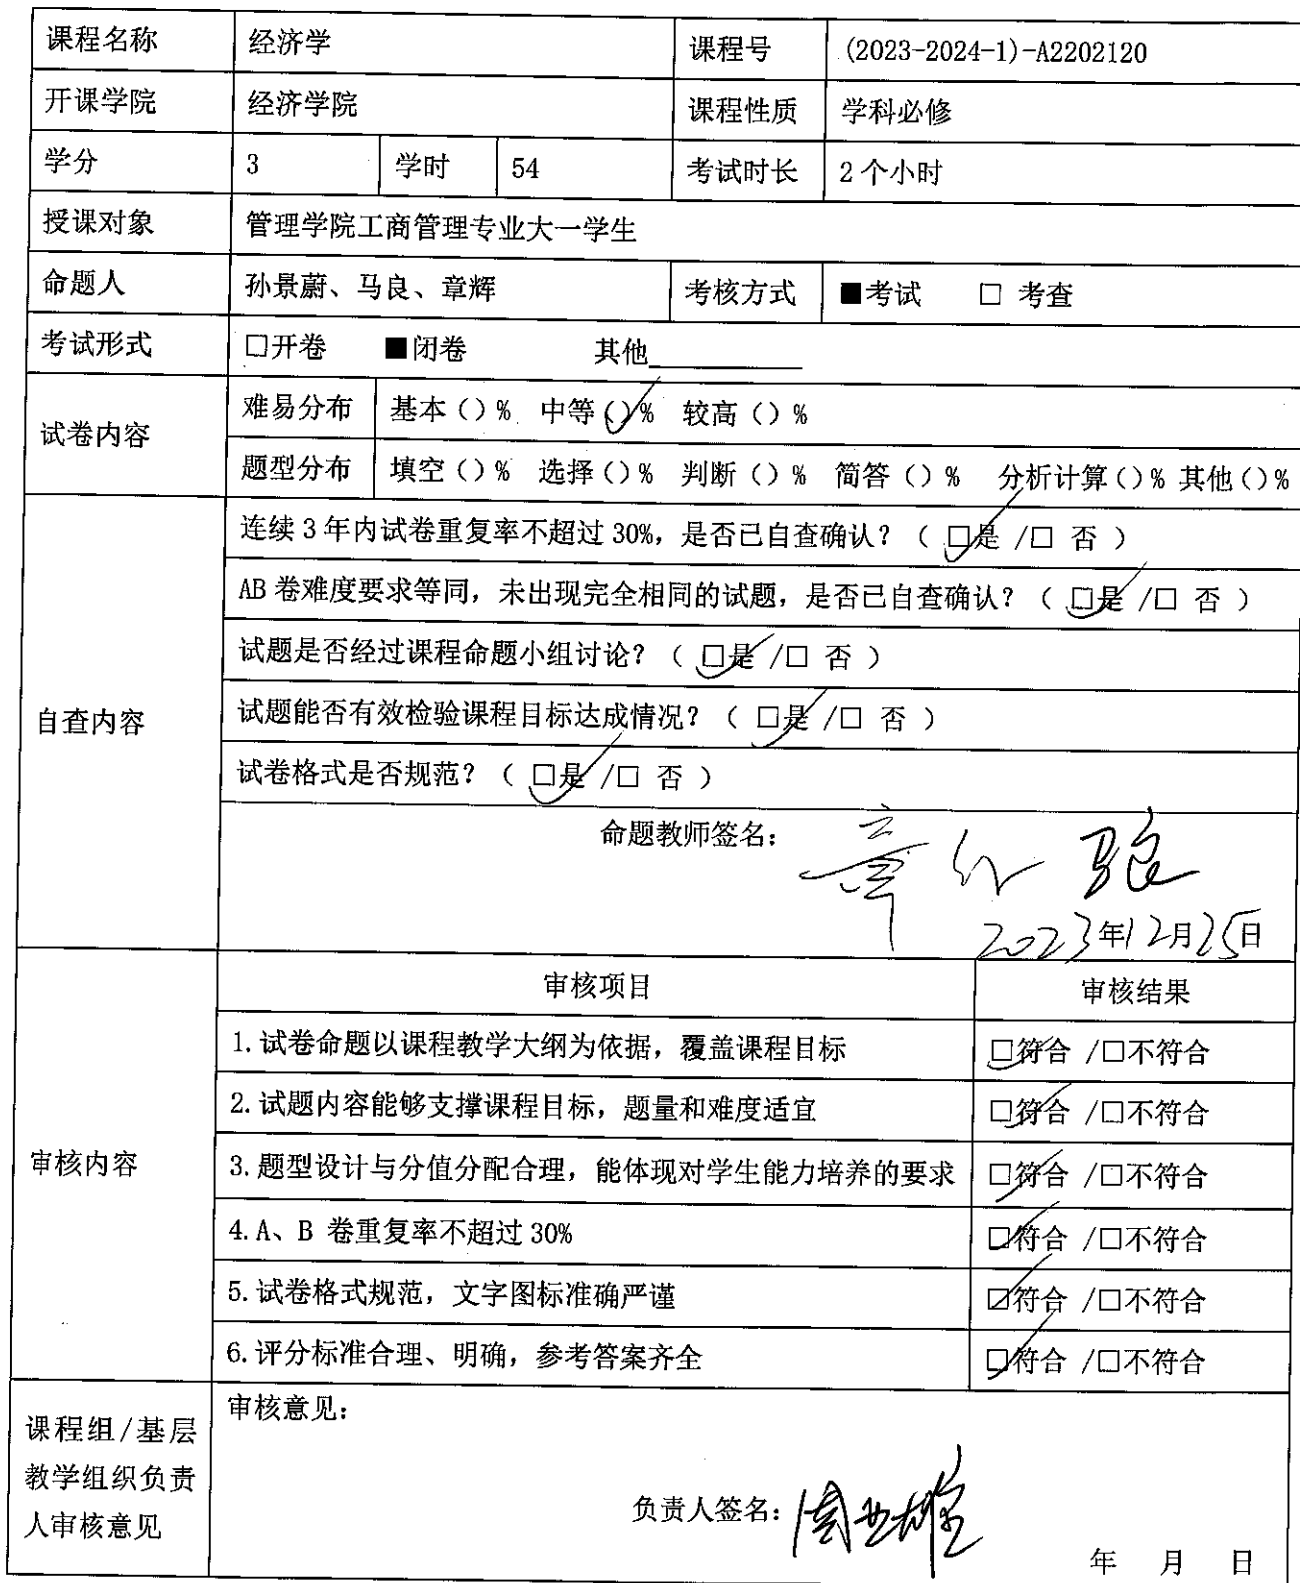 课程名称 经济学 课程号 (2023-2024-1)-A2202120
开课学院 经济学院 课程性质 学科必修
学分 3 学时 54 考试时长 2个小时
授课对象 管理学院工商管理专业大一学生
命题人 孙景蔚、马良、章辉 考核方式 ■考试 □ 考查
考试形式 □开卷 ■闭卷 其他
试卷内容
难易分布 基本()% 中等()% 较高()%
题型分布 填空()% 选择()% 判断()% 简答()% 分析计算()% 其他()%
自查内容
连续3年内试卷重复率不超过30%，是否已自查确认？（ □是 /□ 否 ）
AB卷难度要求等同，未出现完全相同的试题，是否已自查确认？（ □是 /□ 否 ）
试题是否经过课程命题小组讨论？（ □是 /□ 否 ）
试题能否有效检验课程目标达成情况？（ □是 /□ 否 ）
试卷格式是否规范？（ □是 /□ 否 ）
命题教师签名： 章 马良
2023年12月25日
审核内容
审核项目 审核结果
1.试卷命题以课程教学大纲为依据，覆盖课程目标 □符合 /□不符合
2.试题内容能够支撑课程目标，题量和难度适宜 □符合 /□不符合
3.题型设计与分值分配合理，能体现对学生能力培养的要求 □符合 /□不符合
4.A、B 卷重复率不超过30% □符合 /□不符合
5.试卷格式规范，文字图标准确严谨 □符合 /□不符合
6.评分标准合理、明确，参考答案齐全 □符合 /□不符合
课程组/基层
教学组织负责
人审核意见
审核意见：
负责人签名：周亚雄
年 月 日